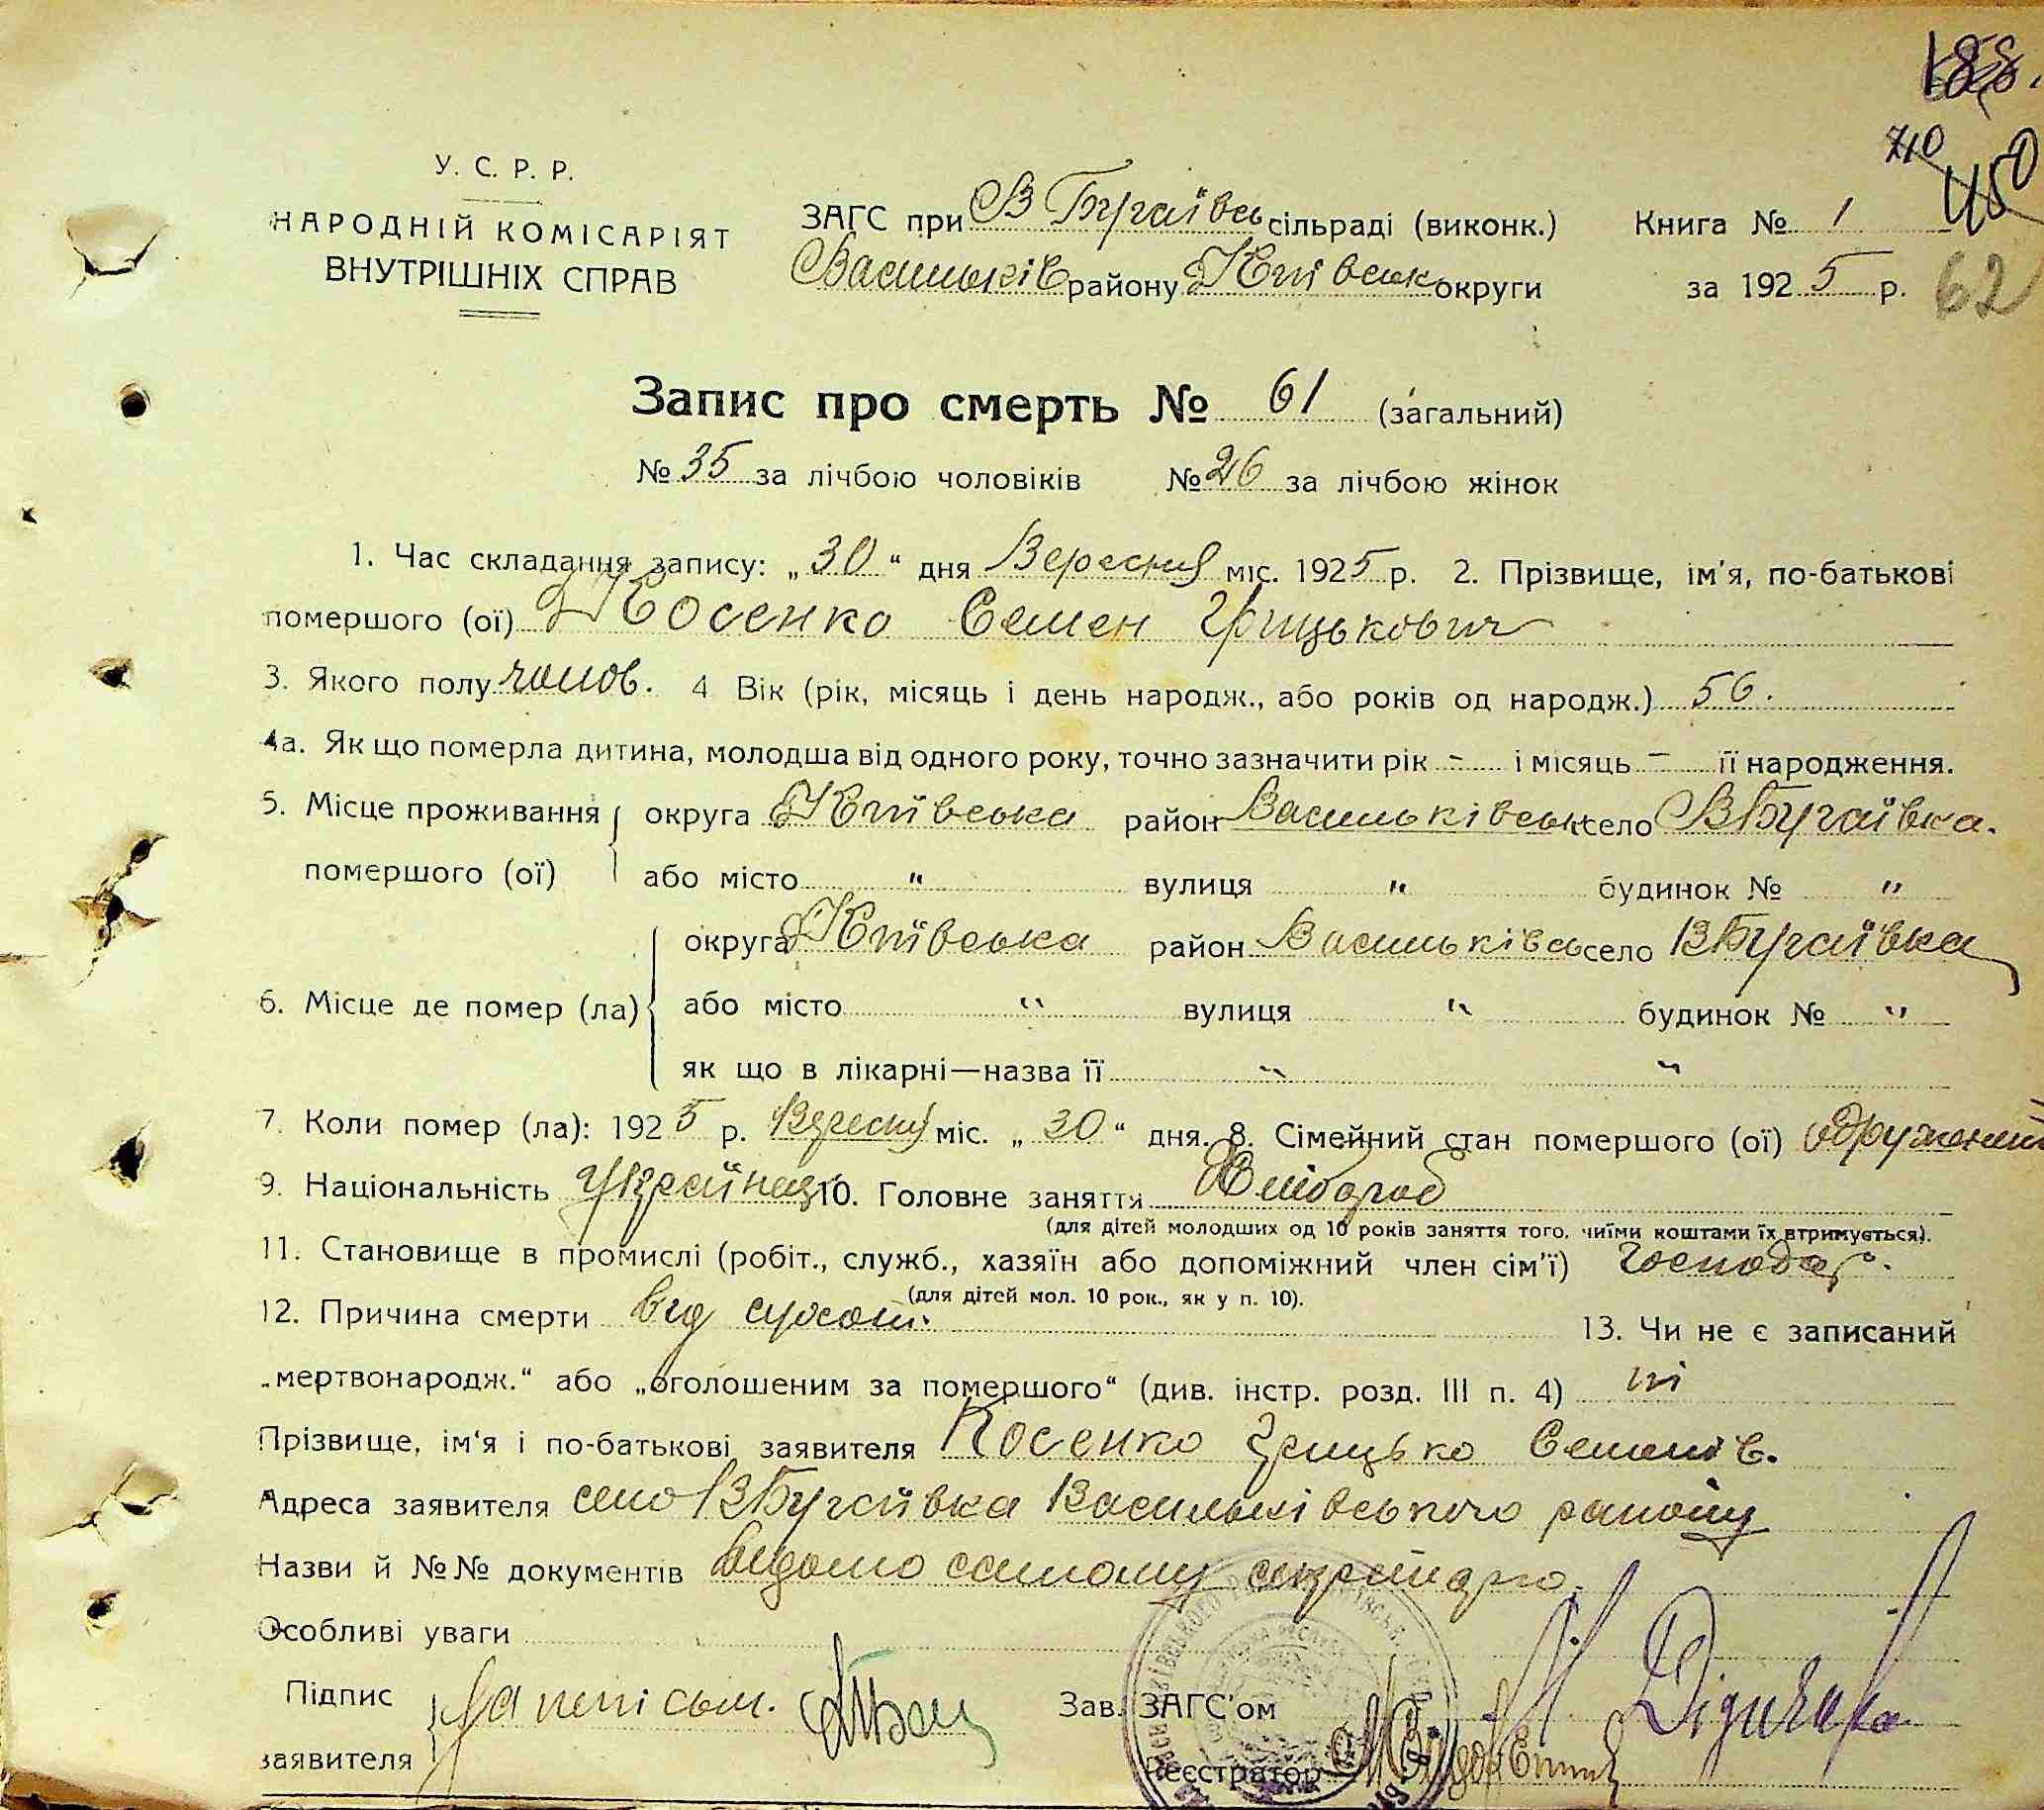 188.
710
450
У. С. Р. Р.
НАРОДНІЙ КОМІСАРІЯТ
ВНУТРІШНІХ СПРАВ
ЗАГС при В Бугаївсь сільраді (виконк.)
Васильків району Київськ округи
Книга № 1
за 1925 р. 62
Запис про смерть № 61 (загальний)
№ 35 за лічбою чоловіків № 26 за лічбою жінок
1. Час складання запису: „30“ дня Вересня міс. 1925 р. 2. Прізвище, ім'я, по-батькові
помершого (ої) Косенко Семен Грицькович
3. Якого полу чолов. 4 Вік (рік, місяць і день народж., або років од народж.) 56.
4а. Як що померла дитина, молодша від одного року, точно зазначити рік - і місяць - її народження.
5. Місце проживання округа Київська район Васильківськ село ВБугаївка.
помершого (ої) або місто " вулиця " будинок № "
округа Київська район Васильківсь село ВБугаївка
6. Місце де помер (ла) або місто " вулиця " будинок № "
як що в лікарні—назва її " "
7. Коли помер (ла): 1925 р. Вересня міс. „30“ дня. 8. Сімейний стан помершого (ої) одружений
9. Національність Украйнець 10. Головне заняття Хлібороб
(для дітей молодших од 10 років заняття того, чиїми коштами їх втримується).
11. Становище в промислі (робіт., служб., хазяїн або допоміжний член сім'ї) господар.
(для дітей мол. 10 рок., як у п. 10).
12. Причина смерти від сухот. 13. Чи не є записаний
„мертвонародж.“ або „оголошеним за помершого“ (див. інстр. розд. III п. 4) ні
Прізвище, ім'я і по-батькові заявителя Косенко Грицько Семенів.
Адреса заявителя село ВБугаївка Васильківського району
Назви й №№ документів відомо самому секретарю.
Особливі уваги
Підпис
заявителя
Зав. ЗАГС'ом
Реєстратор